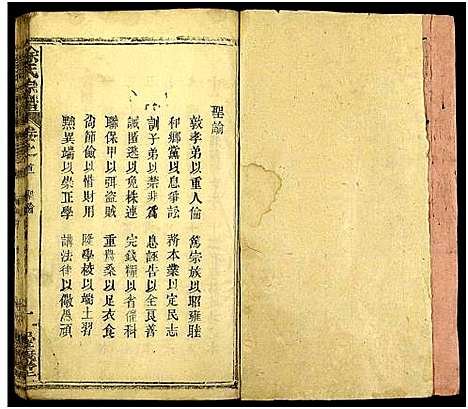 聖諭
敦孝弟以重人倫 篤宗族以昭雍睦
和鄉黨以息爭訟 務本業以定民志
訓子弟以禁非為 息誣告以全良善
誡匿逃以免株連 完錢糧以省催科
聯保甲以弭盜賊 重農桑以足衣食
尚節儉以惜財用 隆學校以端士習
黜異端以崇正學 講法律以儆愚頑
徐氏宗譜 卷之首 聖諭